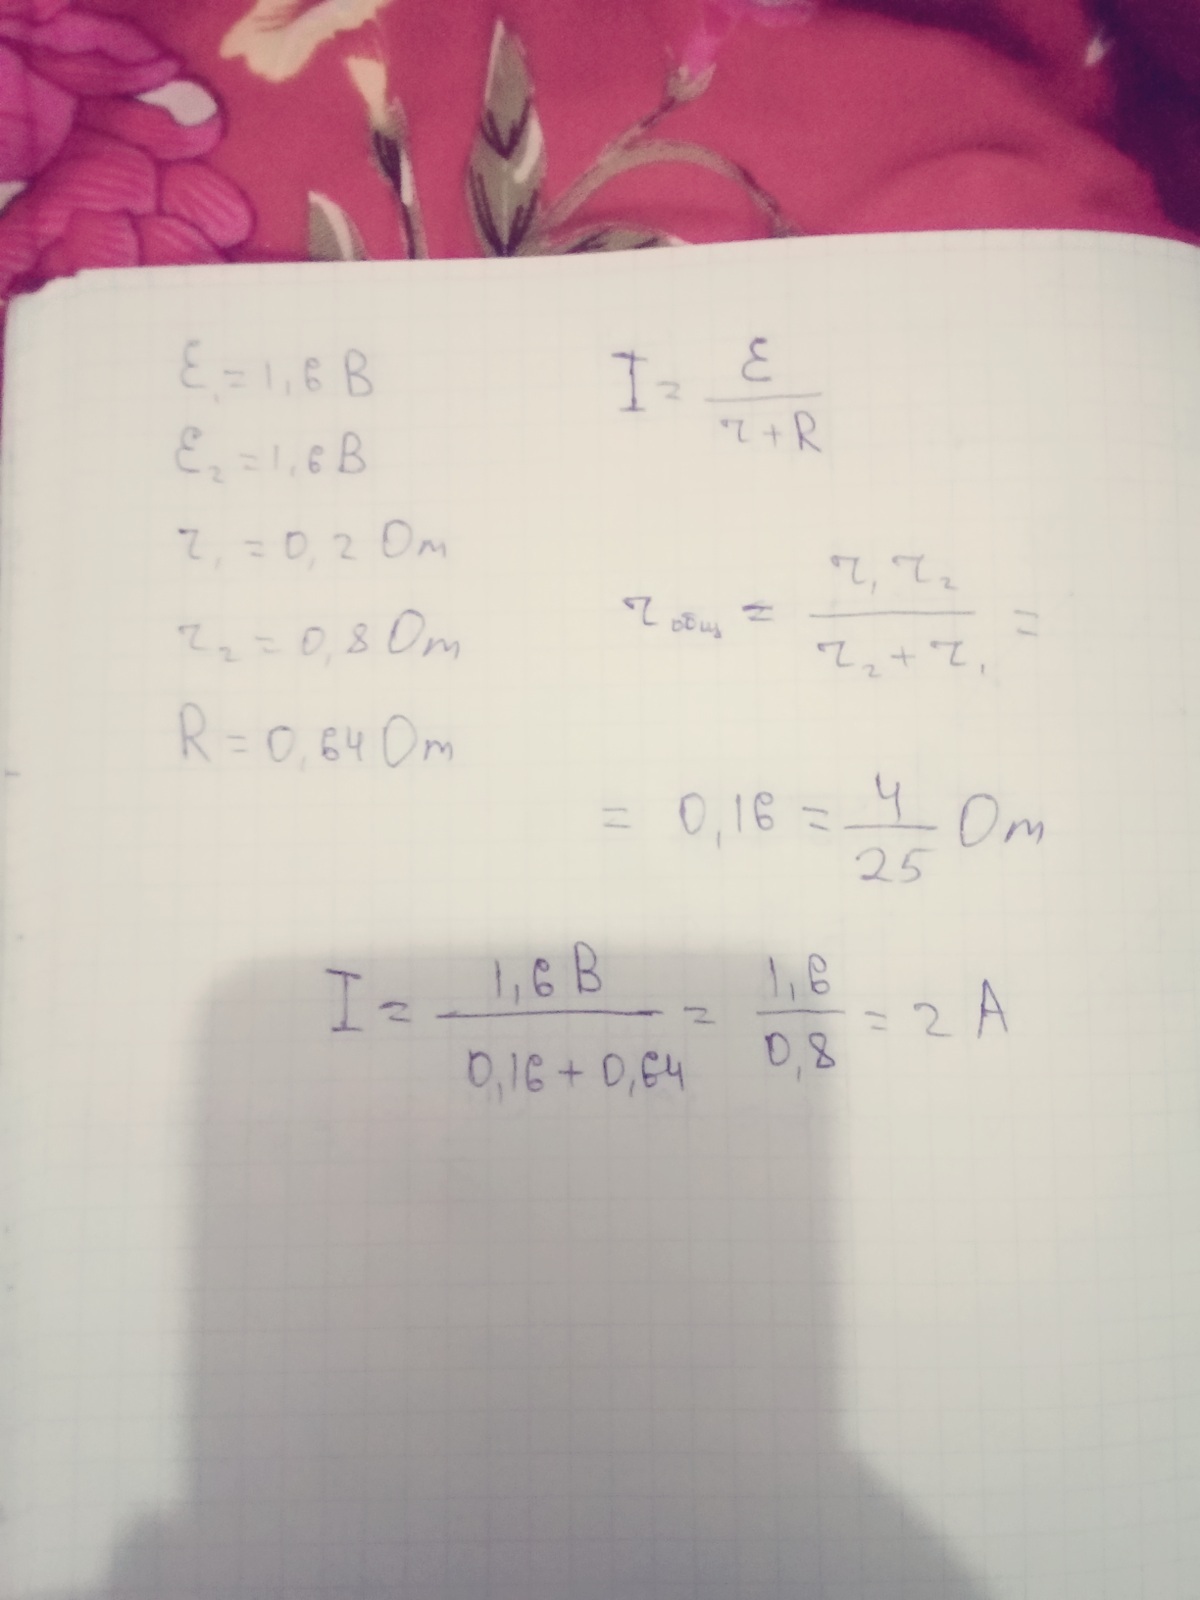 ε₁ = 1,6 В
ε₂ = 1,6 В
r₁ = 0,2 Ом
r₂ = 0,8 Ом
R = 0,64 Ом
I = ε / (r + R)
r общ = r₁ r₂ / (r₂ + r₁) =
= 0,16 = 4/25 Ом
I = 1,6 В / (0,16 + 0,64) = 1,6 / 0,8 = 2 А